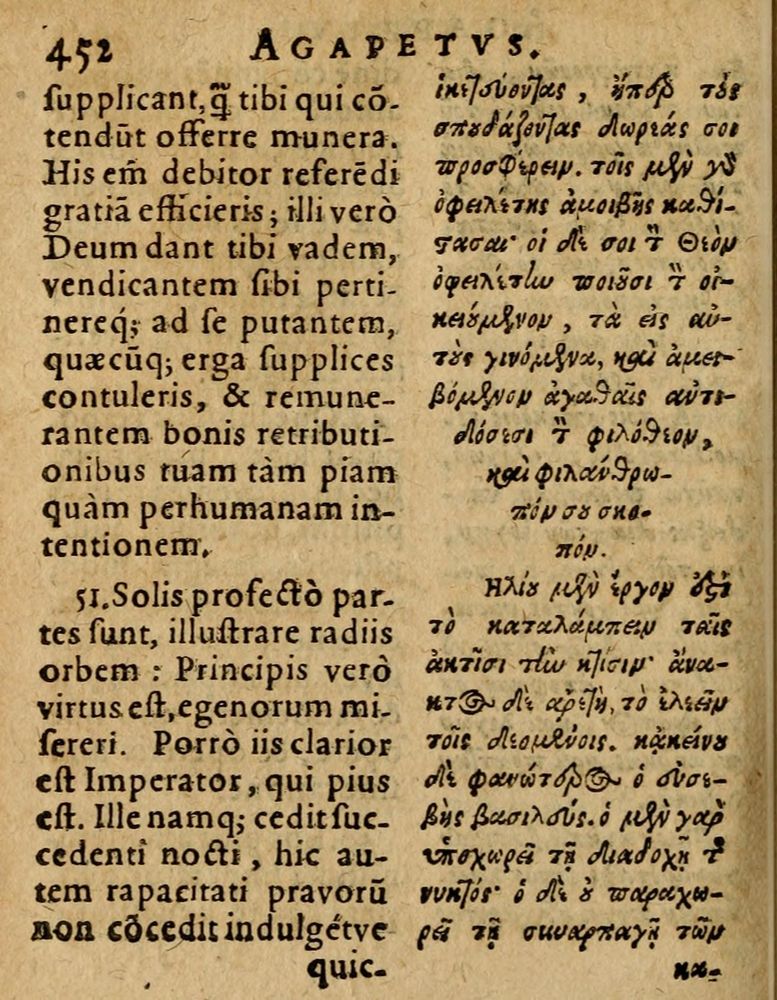 452 AGAPETVS.
supplicant, q̃ tibi qui cō-
tendūt offerre munera.
His em̃ debitor referēdi
gratiā efficieris; illi verò
Deum dant tibi vadem,
vendicantem sibi perti-
nereq́; ad se putantem,
quæcũq; erga supplices
contuleris, & remune-
rantem bonis retributi-
onibus tuam tàm piam
quàm perhumanam in-
tentionem.
51. Solis profectò par-
tes sunt, illustrare radiis
orbem : Principis verò
virtus est, egenorum mi-
sereri. Porrò iis clarior
est Imperator, qui pius
est. Ille namq; cedit suc-
cedenti nocti, hic au-
tem rapacitati pravorũ
non cōcedit indulgétve
quic-
ἱκετεύοντας, ὑπὲρ τοὺς
σπουδάζοντας δωρεάς σοι
προσφέρειν. τοῖς μὲν γὸ
ὀφειλέτης ἀμοιβῆς καθί-
στασαι· οἱ δέ σοι τ̀ Θεὸν
ὀφειλέτην ποιοῦσι τ̀ οἰ-
κειούμενον, τὰ εἰς αὐ-
τοὺς γινόμενα, καὶ ἀμει-
βόμενον ἀγαθαῖς ἀντι-
δόσεσι τ̀ φιλόθεον,
καὶ φιλάνθρω-
πόν σου σκο-
πόν.
Ηλίου μὲν ἔργον ἐστὶ
τὸ καταλάμπειν ταῖς
ἀκτῖσι τὴν κτίσιν· ἄνα-
κτος δὲ ἀρετὴ, τὸ ἐλεεῖν
τοῖς δεομένοις. κἀκείνου
δὲ φανώτερος ὁ εὐσε-
βὴς βασιλεύς. ὁ μὲν γὰρ
ὑποχωρεῖ τῇ διαδοχῇ τ̂
νυκτός· ὁ δὲ οὐ παραχω-
ρεῖ τῇ συναρπαγῇ τῶν
κα-